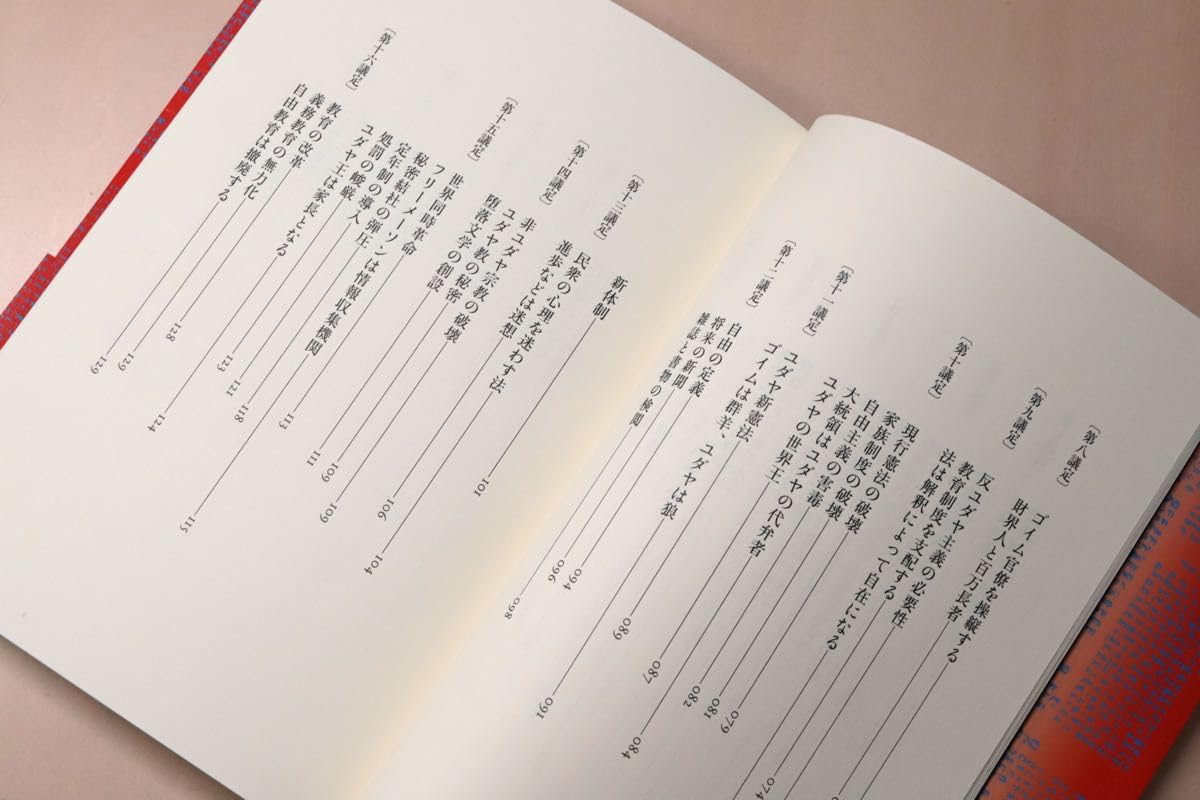 〔第八議定〕
ゴイム官僚を操縦する
財界人と百万長者 074
〔第九議定〕
反ユダヤ主義の必要性
教育制度を支配する
法は解釈によって自在になる
〔第十議定〕
現行憲法の破壊 079
家族制度の破壊 081
自由主義の害毒 082
大統領はユダヤの代弁者 084
ユダヤの世界王 087
〔第十一議定〕
ユダヤ新憲法 089
ゴイムは群羊、ユダヤは狼 091
〔第十二議定〕
自由の定義 094
将来の新聞 096
雑誌と書物の検閲 098
〔第十三議定〕
新体制 101
民衆の心理を迷わす法 104
進歩などは迷想 106
〔第十四議定〕
非ユダヤ宗教の破壊 109
ユダヤ教の秘密 109
堕落文学の創設 111
〔第十五議定〕
世界同時革命 113
フリーメーソンは情報収集機関 115
秘密結社の弾圧 118
定年制の導入 121
処罰の峻厳 123
ユダヤ王は家長となる 124
〔第十六議定〕
教育の改革 128
義務教育の無力化 129
自由教育は撤廃する 129